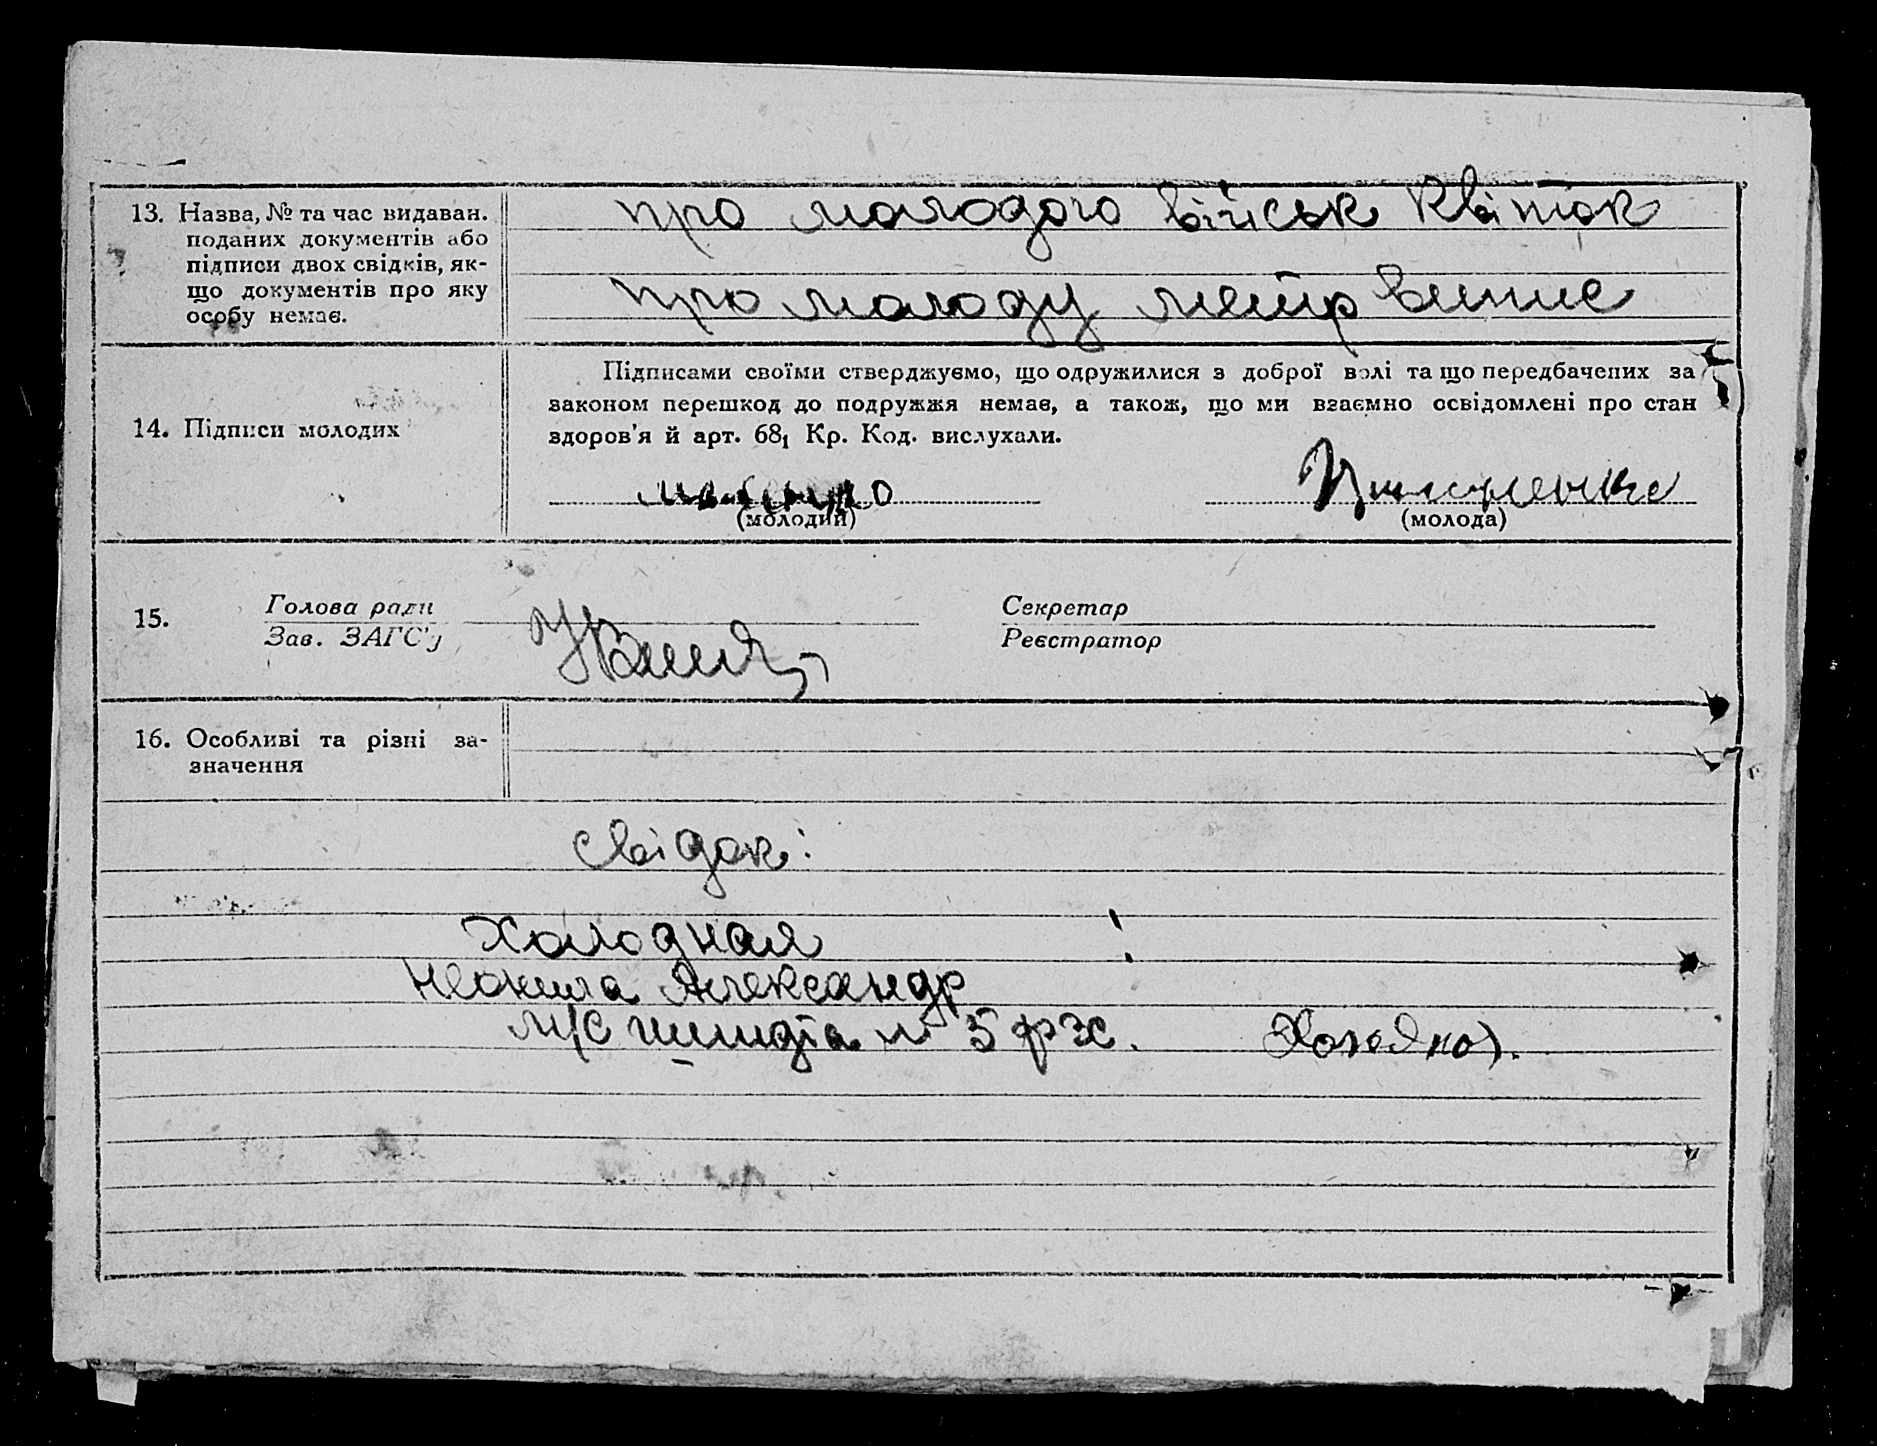 13. Назва, № та час видаван.
поданих документів або
підписи двох свідків, як-
що документів про яку
особу немає.
про молодого військ квиток
про молоду метр випис
14. Підписи молодих
Підписами своїми стверджуємо, що одружилися з доброї волі та що передбачених за
законом перешкод до подружжя немає, а також, що ми взаємно освідомлені про стан
здоров'я й арт. 68₁ Кр. Код. вислухали.
(молодий)
(молода)
15.
Голова ради
Зав. ЗАГС'у
Секретар
Реєстратор
16. Особливі та різні за-
значення
свідок:
Холодная
Неонила Александр
5